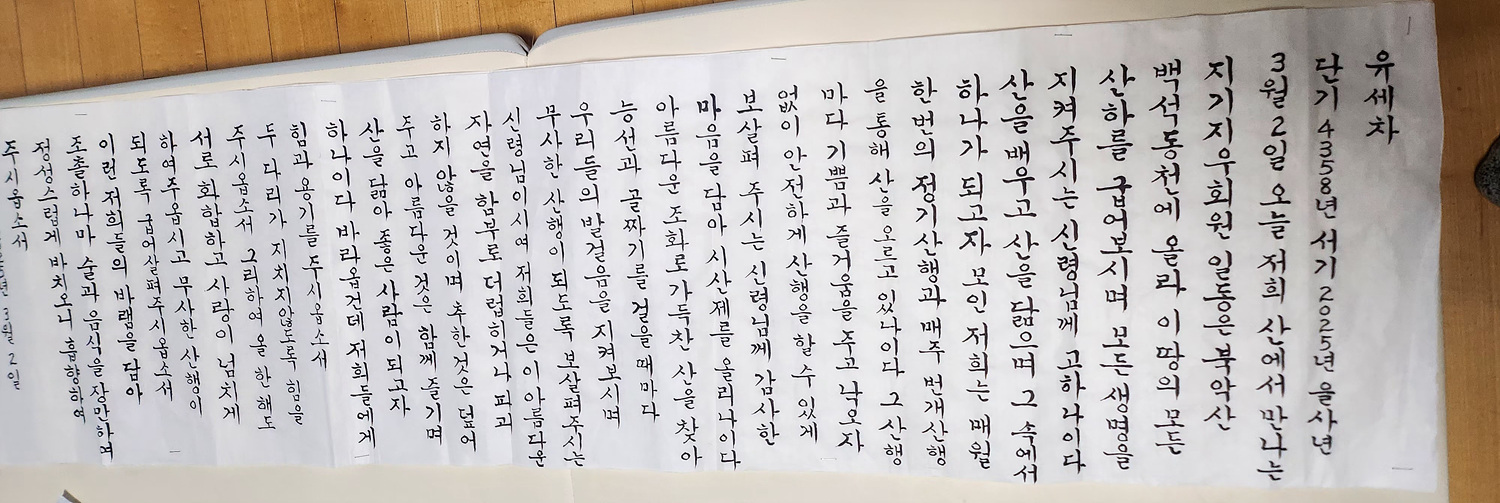 유세차
단기 4358년 서기 2025년 을사년
3월 2일 오늘 저희 산에서 만나는
지기지우회원 일동은 북악산
백석동천에 올라 이 땅의 모든
산하를 굽어보시며 모든 생명을
지켜주시는 신령님께 고하나이다
산을 배우고 산을 닮으며 그 속에서
하나가 되고자 모인 저희는 매월
한번의 정기산행과 매주 번개산행
을 통해 산을 오르고 있나이다 그 산행
마다 기쁨과 즐거움을 주고 낙오자
없이 안전하게 산행을 할 수 있게
보살펴 주시는 신령님께 감사한
마음을 담아 시산제를 올리나이다
아름다운 조화로 가득찬 산을 찾아
능선과 골짜기를 걸을 때마다
우리들의 발걸음을 지켜보시며
무사한 산행이 되도록 보살펴주시는
신령님이시여 저희들은 이 아름다운
자연을 함부로 더럽히거나 파괴
하지 않을 것이며 추한것은 덮어
주고 아름다운 것은 함께 즐기며
산을 닮아 좋은 사람이 되고자
하나이다 바라옵건데 저희들에게
힘과 용기를 주시옵소서
두 다리가 지치지않도록 힘을
주시옵소서 그리하여 올 한해도
서로 화합하고 사랑이 넘치게
하여주옵시고 무사한 산행이
되도록 굽어살펴주시옵소서
이런 저희들의 바램을 담아
조촐하나마 술과 음식을 장만하여
정성스럽게 바치오니 흠향하여
주시옵소서
3월 2일